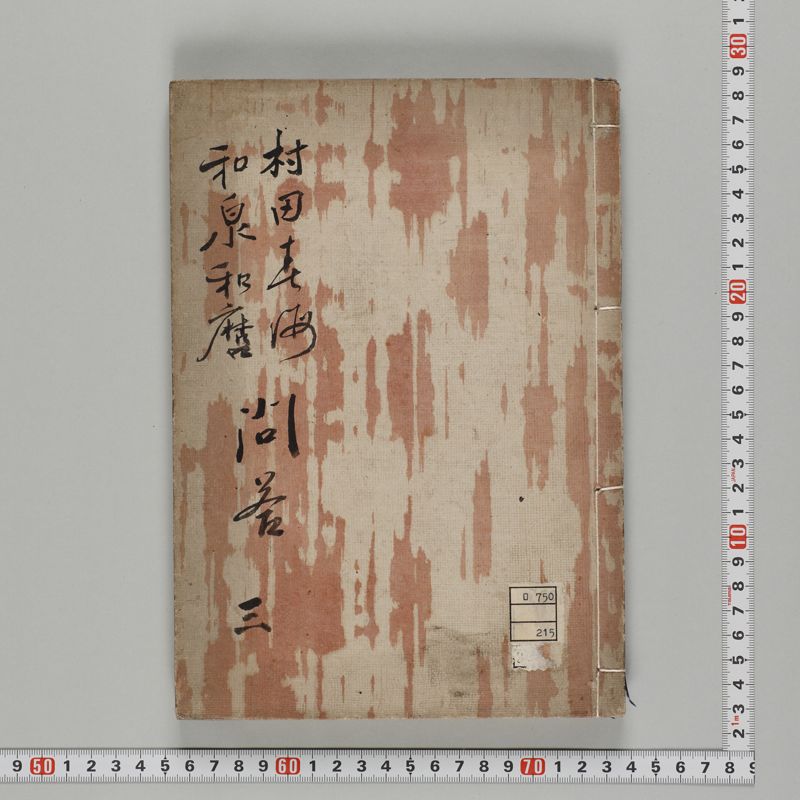 村田春海
和泉和麿
問答
三
ロ 750
215
9 50 1 2 3 4 5 6 7 8 9 60 1 2 3 4 5 6 7 8 9 70 1 2 3 4 5 6 7 8 9
1 30 9 8 7 6 5 4 3 2 1 20 9 8 7 6 5 4 3 2 1 10 9 8 7 6 5 4 3 2
JAPAN
1m